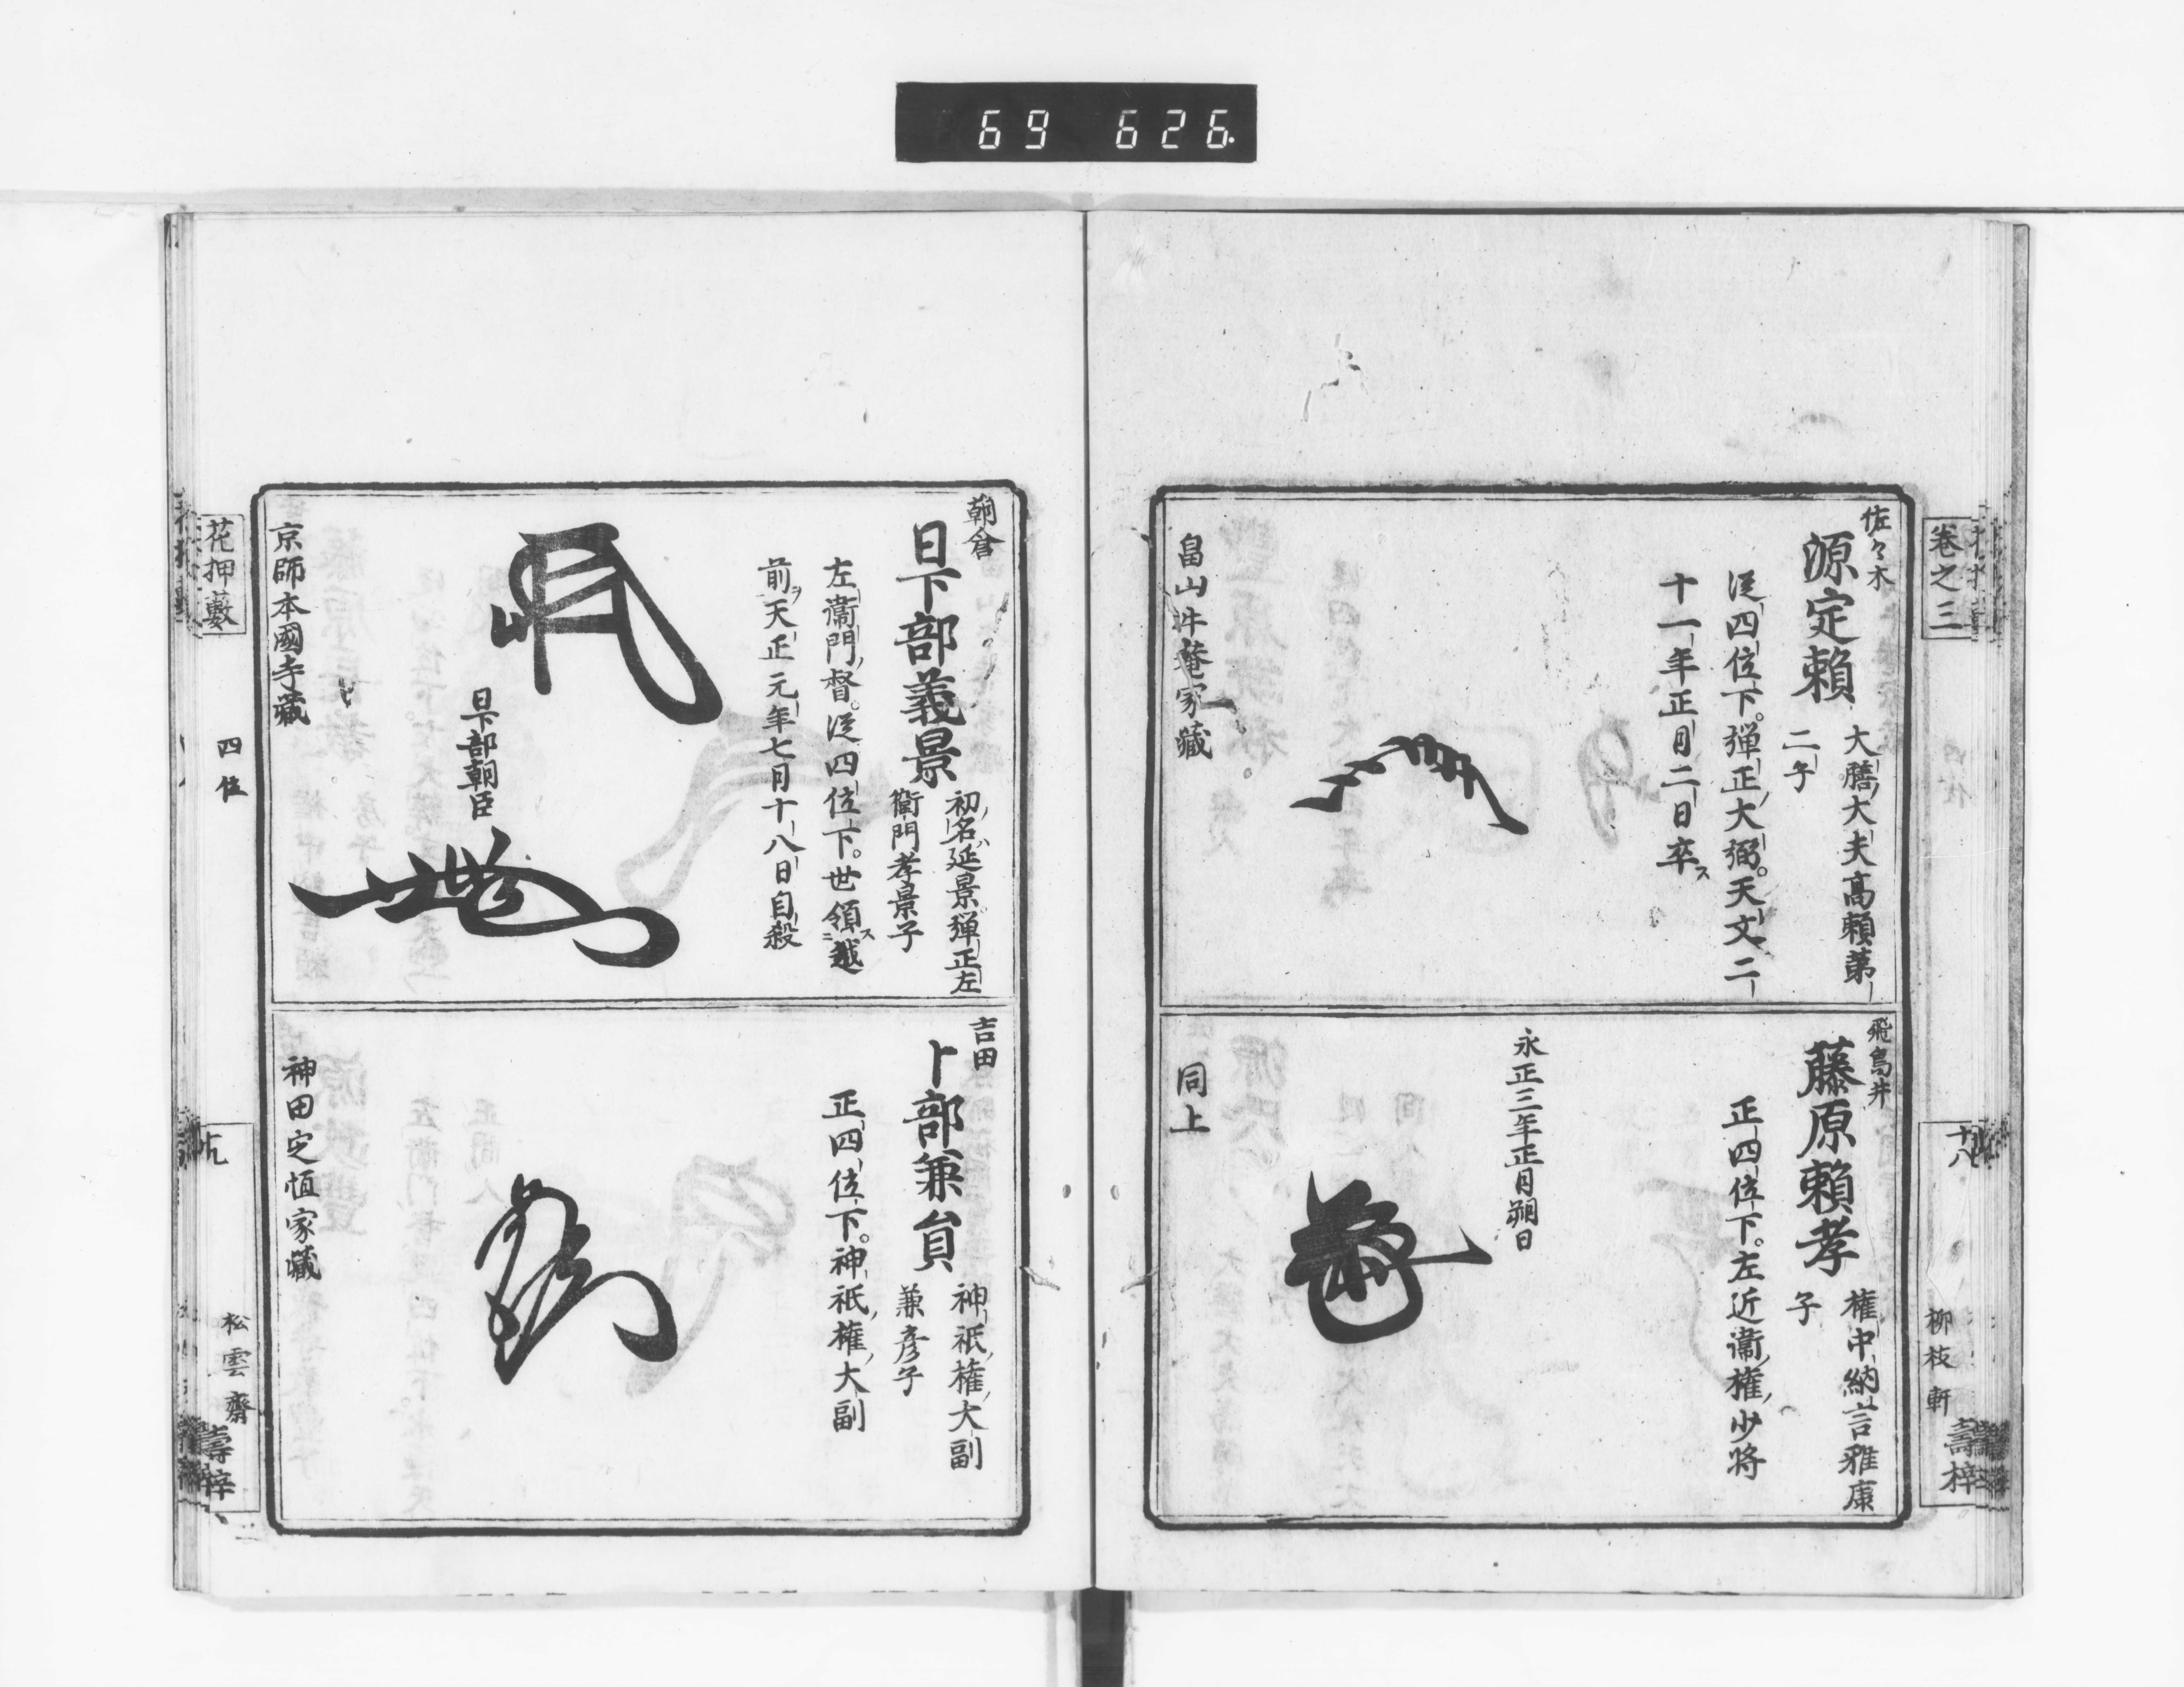 69 626.
卷之三
十八
柳枝軒
壽梓
佐々木
源定賴
大膳大夫高賴第
二子
從四位下。弾正大弼。天文二
十一年正月二日卒ス
畠山牛菴家藏
飛鳥井
藤原賴孝
權中納言雅康
子
正四位下。左近衞權少將
永正三年正月朔日
同上
朝倉
日下部義景
初名ハ延景弾正左
衞門孝景子
左衞門督。從四位下。世領ス越
前ヲ天正元年七月十八日自殺
日下部朝臣
京師本國寺藏
吉田
卜部兼員
神祇權大副
兼彦子
正四位下。神祇權大副
神田定恒家藏
花押藪
四位
十九
松雲齋
壽梓